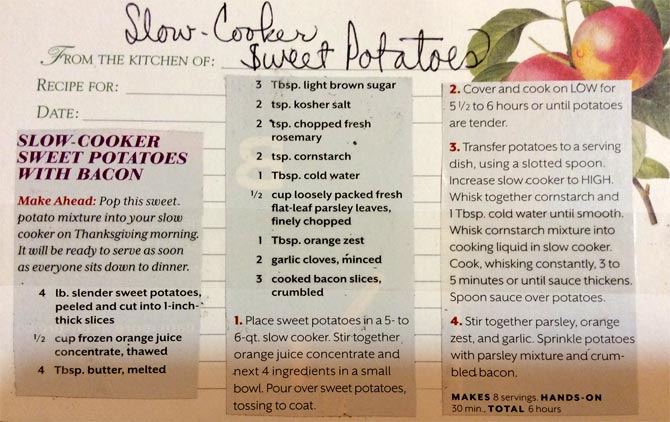 Slow-Cooker
Sweet Potatoes
FROM THE KITCHEN OF:
RECIPE FOR:
DATE:
SLOW-COOKER
SWEET POTATOES
WITH BACON
Make Ahead: Pop this sweet
potato mixture into your slow
cooker on Thanksgiving morning.
It will be ready to serve as soon
as everyone sits down to dinner.
4 lb. slender sweet potatoes,
peeled and cut into 1-inch-
thick slices
1/2 cup frozen orange juice
concentrate, thawed
4 Tbsp. butter, melted
3 Tbsp. light brown sugar
2 tsp. kosher salt
2 tsp. chopped fresh
rosemary
2 tsp. cornstarch
1 Tbsp. cold water
1/2 cup loosely packed fresh
flat-leaf parsley leaves,
finely chopped
1 Tbsp. orange zest
2 garlic cloves, minced
3 cooked bacon slices,
crumbled
1. Place sweet potatoes in a 5- to
6-qt. slow cooker. Stir together
orange juice concentrate and
next 4 ingredients in a small
bowl. Pour over sweet potatoes,
tossing to coat.
2. Cover and cook on LOW for
5 1/2 to 6 hours or until potatoes
are tender.
3. Transfer potatoes to a serving
dish, using a slotted spoon.
Increase slow cooker to HIGH.
Whisk together cornstarch and
1 Tbsp. cold water until smooth.
Whisk cornstarch mixture into
cooking liquid in slow cooker.
Cook, whisking constantly, 3 to
5 minutes or until sauce thickens.
Spoon sauce over potatoes.
4. Stir together parsley, orange
zest, and garlic. Sprinkle potatoes
with parsley mixture and crum-
bled bacon.
MAKES 8 servings. HANDS-ON
30 min., TOTAL 6 hours